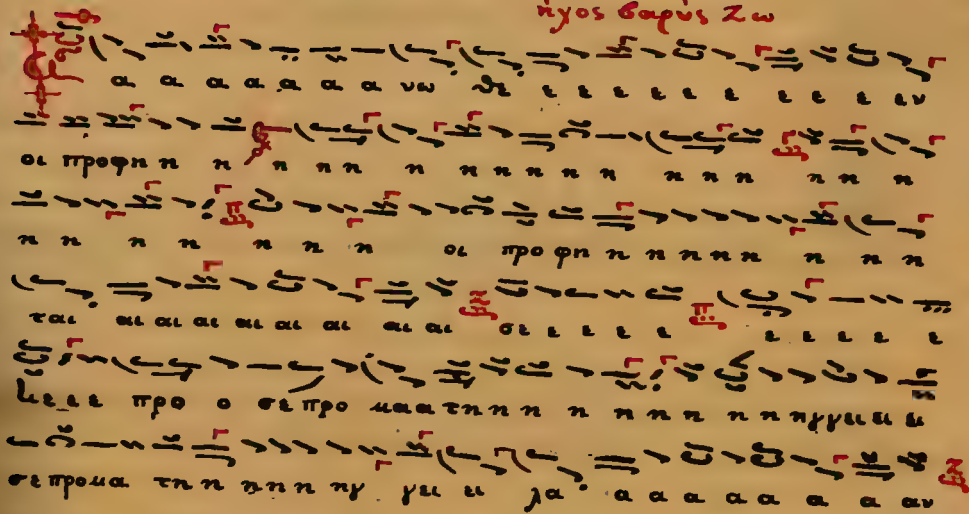 ἦχος βαρύς Ζω
α α α α α α α νω θε ε ε ε ε ε ε ε ε ε ε εν
οι προφη η η η η η η η η η η η η η η η η η
η η η η η η η οι προφη η η η η η η η
ται αι αι αι αι αι αι αι αι σε ε ε ε ε ε ε ε ε ε
ε ε ε προ ο σε προ μα α τη η η η η η η η η ηγ γει ει ει
σε προμα τη η η η η ηγ γει ει λα α α α α α α α αν